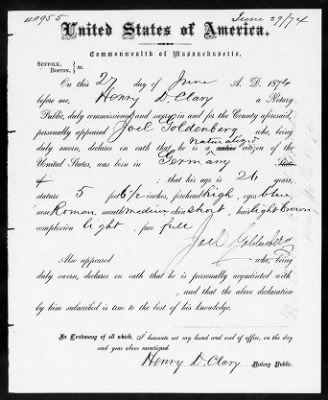 40955
June 29/74
United States of America.
Commonwealth of Massachusetts.
SUFFOLK, BOSTON, } ss.
On this 27 day of June A. D. 1874
before me, Henry D. Clary a Notary
Public, duly commissioned and sworn in and for the County aforesaid,
personally appeared Joel Goldenberg who, being
duly sworn, declares on oath that he is a naturalized citizen of the
United States, was born in Germany State
of ; that his age is 26 years,
stature 5 feet 6 1/2 inches, forehead high, eyes blue
nose Roman, mouth medium, chin short, hair light brown
complexion light, face full
Joel Goldenberg
Also appeared who, being
duly sworn, declares on oath that he is personally acquainted with
, and that the above declaration
by him subscribed is true to the best of his knowledge.
In Testimony of all which, I hereunto set my hand and seal of office, on the day
and year above mentioned.
Henry D. Clary Notary Public.